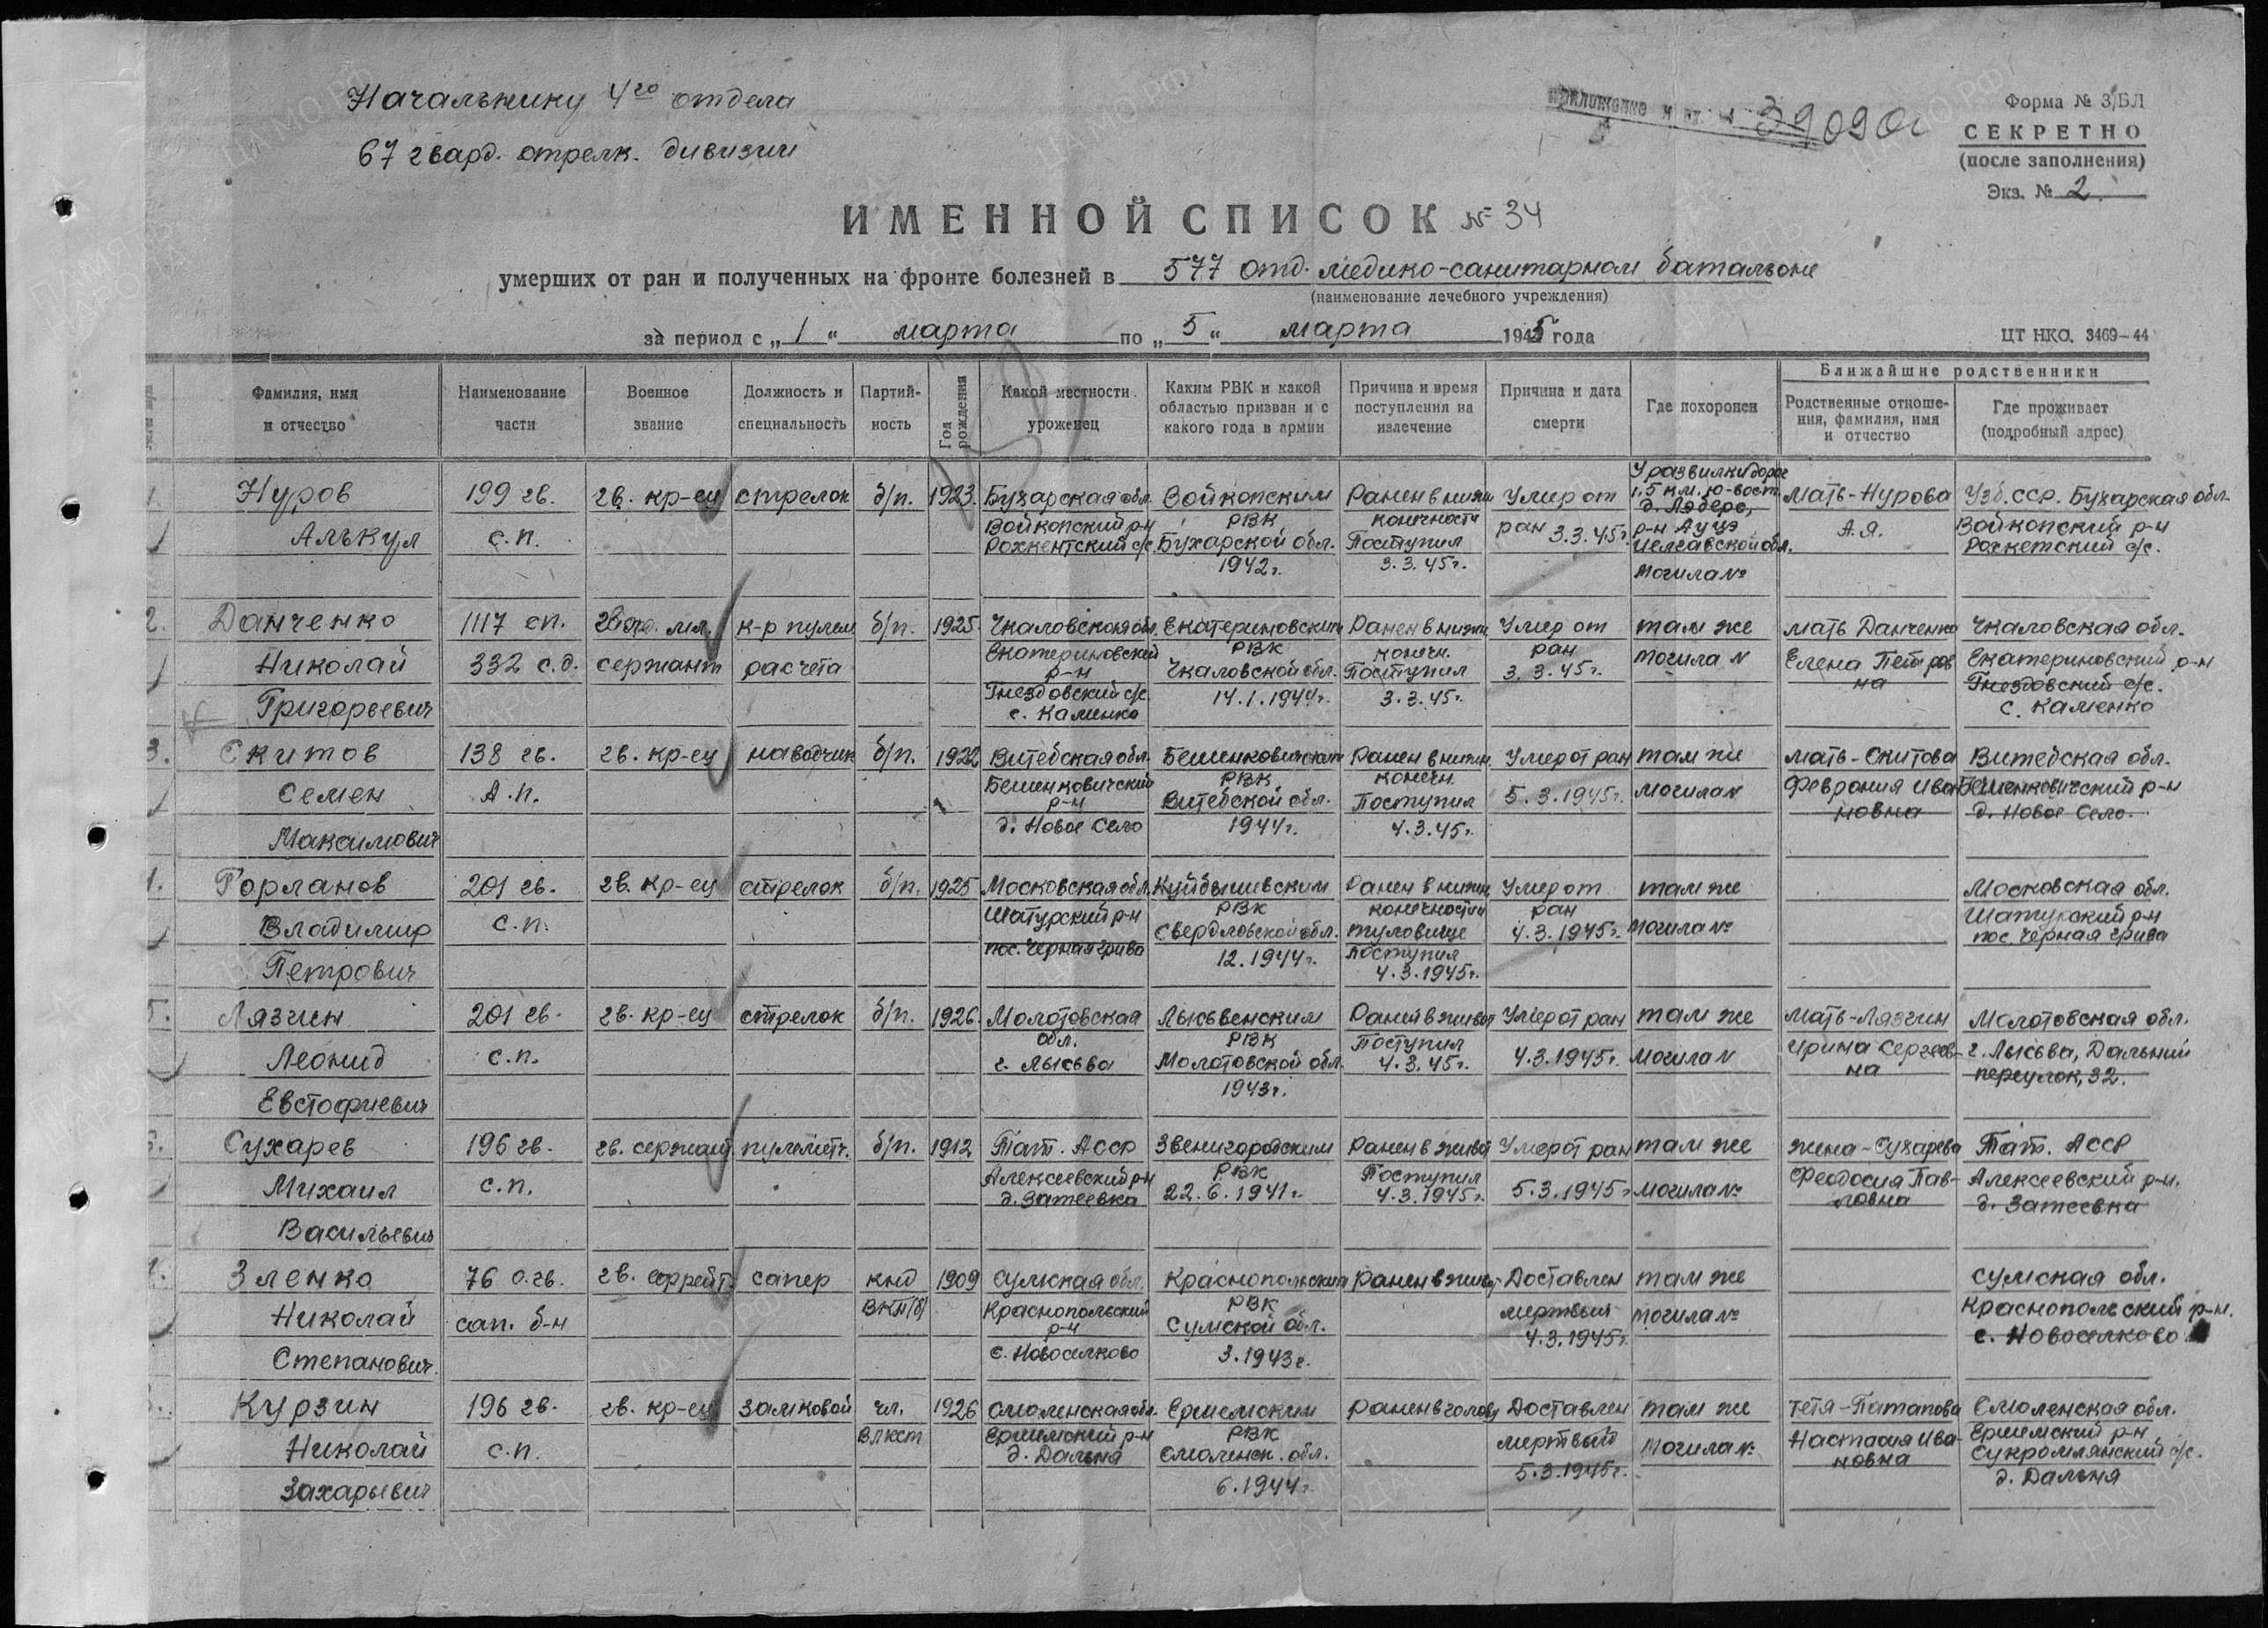 Начальнику 4го отдела
67 гвард. стрелк. дивизии
приложение к вх. 39090с
Форма № 3/БЛ
СЕКРЕТНО
(после заполнения)
Экз. № 2
ИМЕННОЙ СПИСОК № 34
умерших от ран и полученных на фронте болезней в 577 отд. медико-санитарном батальоне
(наименование лечебного учреждения)
за период с „1“ марта по „5“ марта 1945 года
ЦТ НКО. 3469-44
Фамилия, имя и отчество
Наименование части
Военное звание
Должность и специальность
Партийность
Год рождения
Какой местности уроженец
Каким РВК и какой областью призван и с какого года в армии
Причина и время поступления на излечение
Причина и дата смерти
Где похоронен
Ближайшие родственники
Родственные отношения, фамилия, имя и отчество
Где проживает (подробный адрес)
1. Нуров Алькул
199 гв. с.п.
гв. кр-ец
стрелок
б/п.
1923.
Бухарская обл. Войкопский р-н Рохкентский с/с.
Войкопским РВК Бухарской обл. 1942г.
Ранен в нижн. конечности Поступил 3.3.45г.
Умер от ран 3.3.45г.
У развилки дорог 1,5 км. ю-вост. д. Лэдере, р-н Ауцэ Иелгавской обл. Могила №
Мать-Нурова А.Я.
Узб. ССР. Бухарская обл. Войкопский р-н Рохкетский с/с.
2. Данченко Николай Григорьевич
1117 сп. 332 с.д.
Гвард. мл. сержант
к-р пулем расчета
б/п.
1925.
Чкаловская обл. Екатериновский р-н Гнездовский с/с. с. Каменка
Екатериновским РВК Чкаловской обл. 14.1.1944г.
Ранен в нижн. конечн. Поступил 3.3.45г.
Умер от ран 3.3.45г.
там же Могила №
мать Данченко Елена Петровна
Чкаловская обл. Екатериновский р-н Гнездовский с/с. с. Каменка
3. Скитов Семен Максимович
138 гв. А.п.
гв. кр-ец
наводчик
б/п.
1922
Витебская обл. Бешенковичский р-н д. Новое Село
Бешенковичским РВК Витебской обл. 1944г.
Ранен в нижн. конечн. Поступил 4.3.45г.
Умер от ран 5.3.1945г.
там же могила №
мать-Скитова Феврония Ивановна
Витебская обл. Бешенковичский р-н д. Новое Село.
4. Горланов Владимир Петрович
201 гв. с.п.
гв. кр-ец
стрелок
б/п.
1925
Московская обл. Шатурский р-н пос. Черная грива
Куйбышевским РВК Свердловской обл. 12.1944г.
Ранен в нижн. конечности туловище Поступил 4.3.1945г.
Умер от ран 4.3.1945г.
там же Могила №
Московская обл. Шатурский р-н пос. Черная грива
5. Лязгин Леонид Евстофиевич
201 гв. с.п.
гв. кр-ец
стрелок
б/п.
1926.
Молотовская обл. г. Лысьва
Лысьвенским РВК Молотовской обл. 1943г.
Ранен в живот Поступил 4.3.45г.
Умер от ран 4.3.1945г.
там же Могила №
Мать-Лязгин Ирина Сергеевна
Молотовская обл. г. Лысьва, Дальний переулок, 32.
6. Сухарев Михаил Васильевич
196 гв. с.п.
гв. сержант
пулеметч.
б/п.
1912
Тат. АССР Алексеевский р-н д. Затеевка
Звенигородским РВК 22.6.1941г.
Ранен в живот Поступил 4.3.1945г.
Умер от ран 5.3.1945г
там же Могила №
жена-Сухарева Феодосия Павловна
Тат. АССР Алексеевский р-н. д. Затеевка
7. Зленко Николай Степанович.
76 о.гв. сап. б-н
гв. ефрейт.
сапер
кнд ВКП(б)
1909
Сумская обл. Краснопольский р-н с. Новоселково
Краснопольским РВК Сумской обл. 3.1943г.
Ранен в живот
Доставлен мертвый 4.3.1945г.
там же Могила №
Сумская обл. Краснопольский р-н. с. Новоселково
8. Курзин Николай Захарьевич
196 гв. с.п.
гв. кр-ец
замковой
чл. ВЛКСМ
1926
Смоленская обл. Ершичский р-н д. Дальня
РВК Смоленск. обл. 6.1944г.
Ранен в голову
Доставлен мертвый 5.3.1945г.
там же Могила №
тетя-Потапова Настасия Ивановна
Смоленская обл. р-н Сукромлянский с/с. д. Дальня